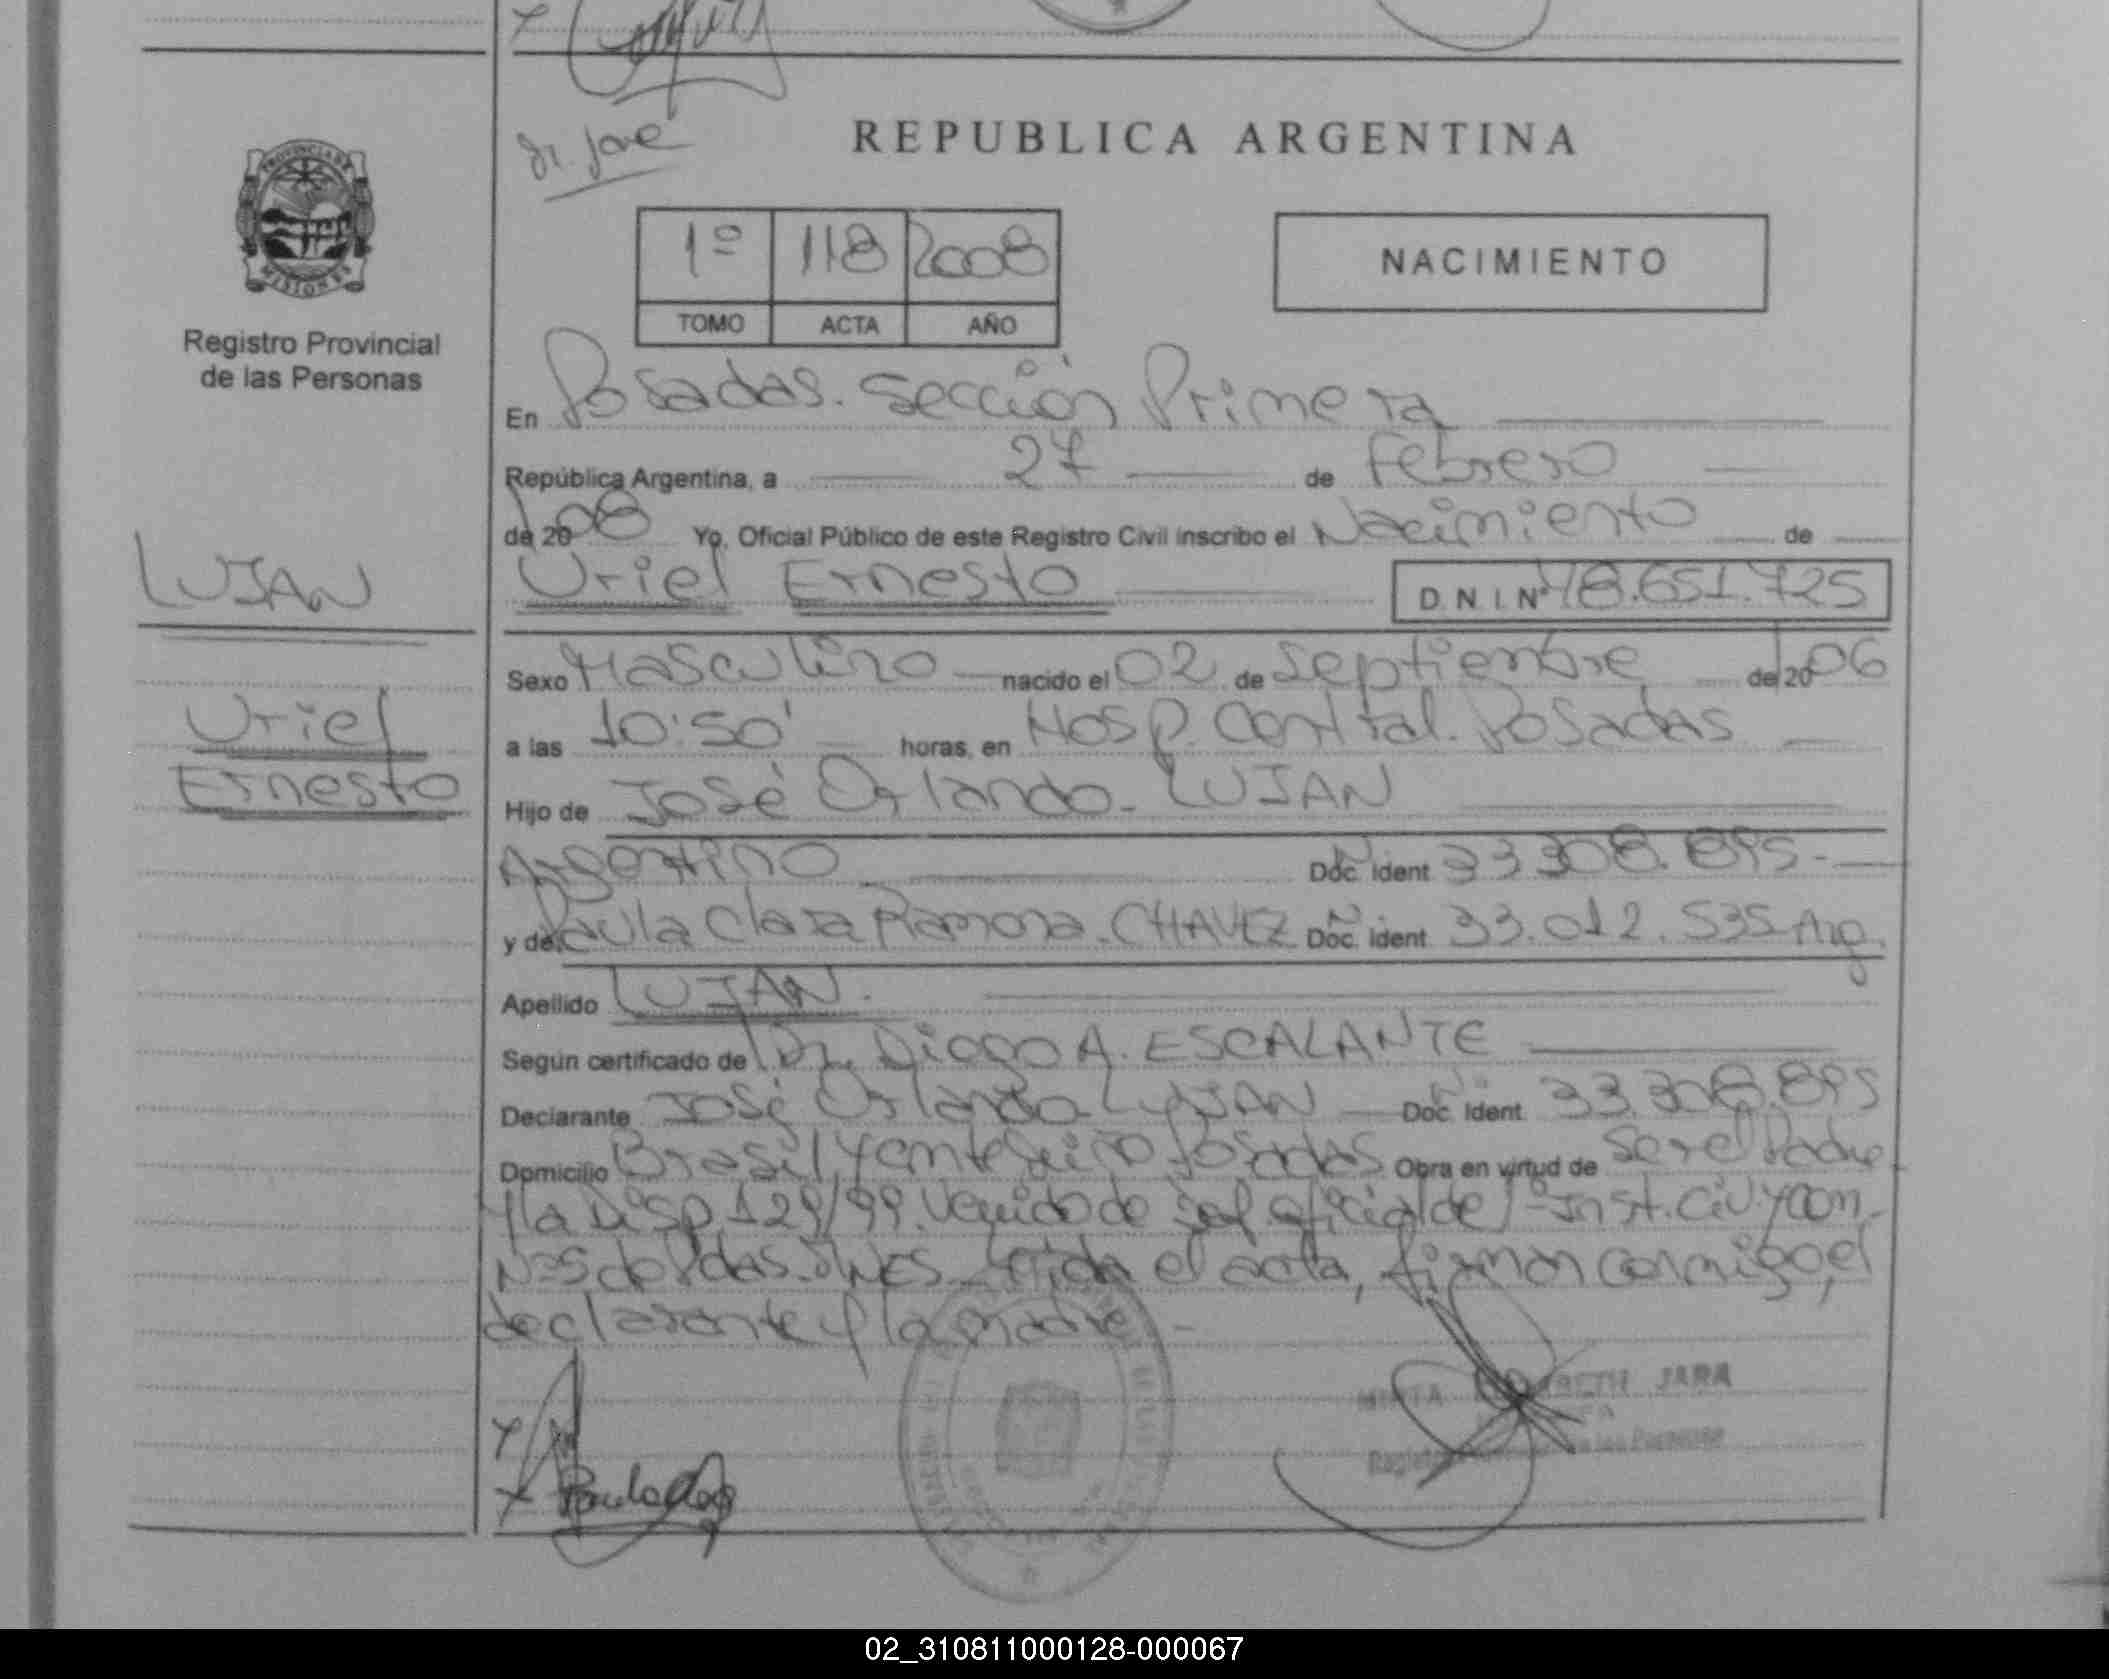 Dr. José
REPUBLICA ARGENTINA
PROVINCIA DE
MISIONES
Registro Provincial
de las Personas
1º 118 2008
TOMO ACTA AÑO
NACIMIENTO
En Posadas. Sección Primera
República Argentina, a 27 de Febrero
de 20 08 Yo, Oficial Público de este Registro Civil inscribo el Nacimiento de
LUJAN
Uriel Ernesto D.N.I. Nº 48.651.725
Sexo Masculino nacido el 02 de Septiembre de 20 06
Uriel
Ernesto
a las 10:50' horas, en Hosp. Central. Posadas
Hijo de José Orlando. LUJAN
Argentino Doc. Ident. Nº 33.308.895.-
y de Paula Clara Ramona. CHAVEZ Doc. Ident. Nº 33.012.535 Arg.
Apellido LUJAN.
Según certificado de Dr. Diego A. ESCALANTE
Declarante José Orlando LUJAN Doc. Ident. Nº 33.308.895
Domicilio Brasil y Posadas Obra en virtud de ser el Padre
y la Disp. 129/99. Venido de of. oficial de Inst. Civ. y Com.
Nº 5 de Pdas. Mnes. Leída el acta, firman conmigo, el
declarante y la madre.-
MIRTA ELIZABETH JARA
Registro de las Personas
02_310811000128-000067